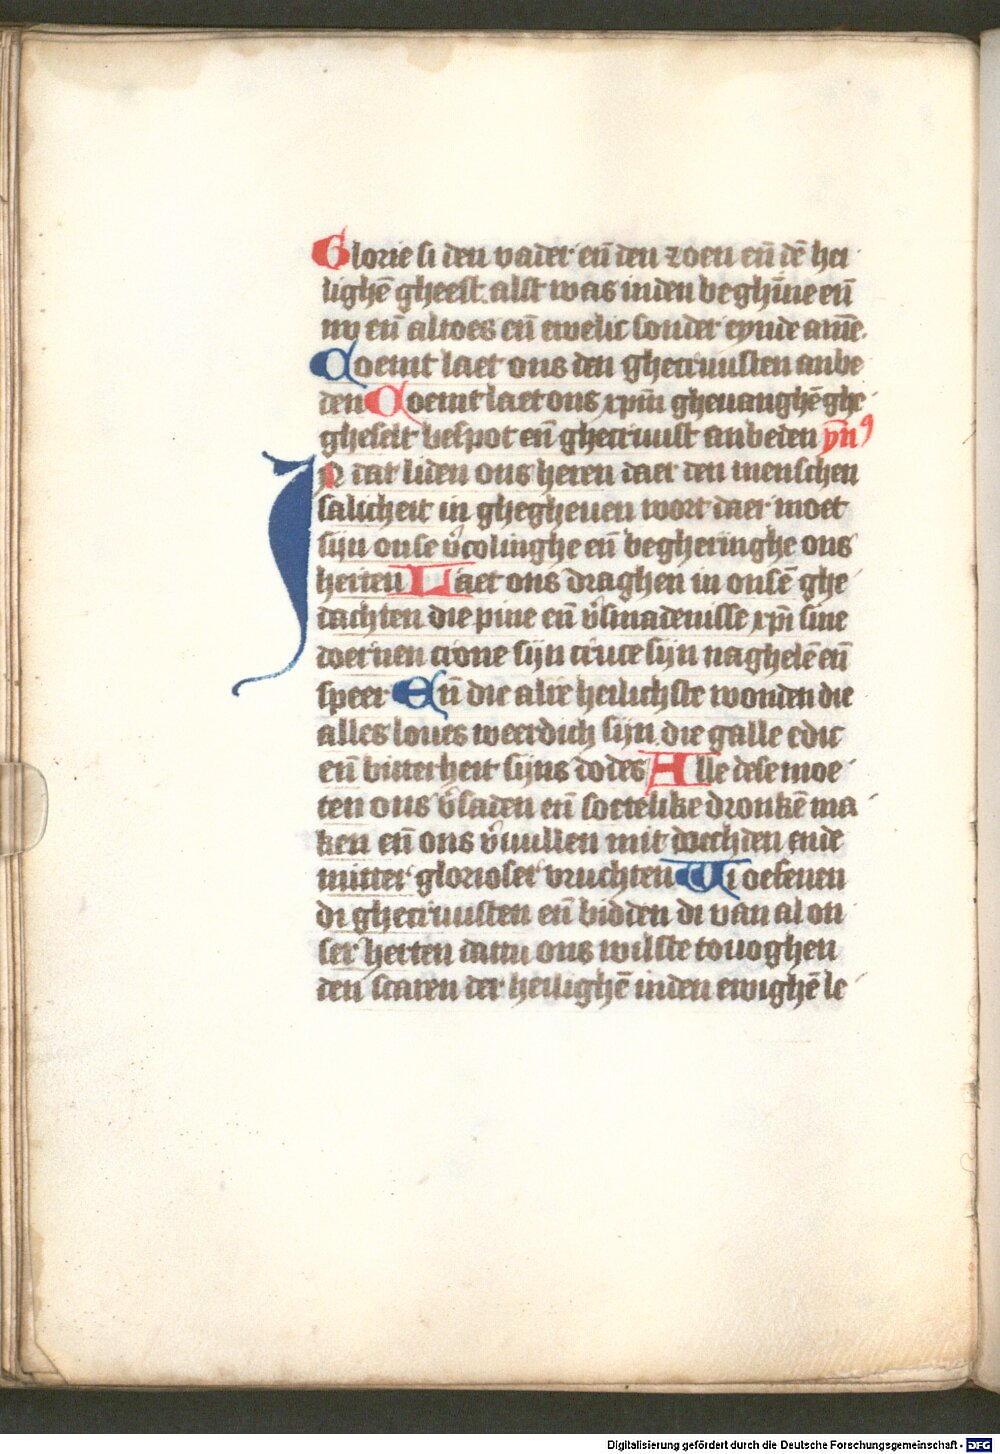 Glorie si den vader en̄ den zoen en̄ dē hei
lighē gheest. alst was inden beghīne en̄
nv en̄ altoes en̄ ewelic sonder eynde amē.
Coemt laet ons den ghecruusten anbe
den Coemt laet ons xpm̄ gheuanghē ghe
gheselt bespot en̄ ghecruust anbeden ym̄ꝰ
IN dat liden ons heren daer den menschen
salicheit in ghegheuen wort daer moet
sijn onse v̓colinghe en̄ begheringhe ons
herten Laet ons draghen in onsē ghe
dachten die pine en̄ v̓smadenisse xpī sine
doernen crone sijn cruce sijn naghelē en̄
speer En̄ die alre heilichste wonden die
alles loues weerdich sijn die galle edic
en̄ bitterheit sijns dodes Alle dese moe
ten ons v̓saden en̄ soetelike dronkē ma
ken en̄ ons v̓uullen mit doechden ende
mitter glorioser vruchten Wi oefenen
di ghecruusten en̄ bidden di van al on
ser herten dattu ons wilste touoghen
den scaren der heilighē inden ewighē le
Digitalisierung gefördert durch die Deutsche Forschungsgemeinschaft - DFG